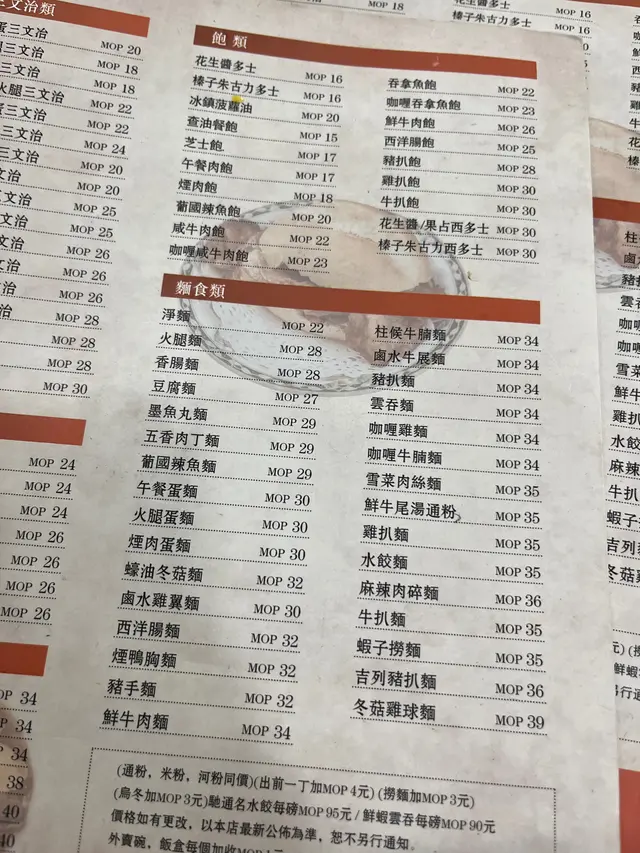 三文治類
蛋三文治 MOP 20
三文治 MOP 18
三文治 MOP 18
火腿三文治 MOP 22
蛋三文治 MOP 22
三文治 MOP 24
三文治 MOP 20
三文治 MOP 20
三文治 MOP 25
三文治 MOP 25
三文治 MOP 26
治 MOP 26
治 MOP 26
治 MOP 28
MOP 28
MOP 28
MOP 30
MOP 24
MOP 24
MOP 24
MOP 26
MOP 26
MOP 26
MOP 34
34
34
38
40
40
飽類
花生醬多士 MOP 16
榛子朱古力多士 MOP 16
冰鎮菠蘿油 MOP 20
查油餐飽 MOP 15
芝士飽 MOP 17
午餐肉飽 MOP 17
煙肉飽 MOP 18
葡國辣魚飽 MOP 20
咸牛肉飽 MOP 22
咖喱咸牛肉飽 MOP 23
吞拿魚飽 MOP 22
咖喱吞拿魚飽 MOP 23
鮮牛肉飽 MOP 26
西洋腸飽 MOP 25
豬扒飽 MOP 28
雞扒飽 MOP 30
牛扒飽 MOP 30
花生醬/果占西多士 MOP 30
榛子朱古力西多士 MOP 30
麵食類
淨麵 MOP 22
火腿麵 MOP 28
香腸麵 MOP 28
豆腐麵 MOP 27
墨魚丸麵 MOP 29
五香肉丁麵 MOP 29
葡國辣魚麵 MOP 29
午餐蛋麵 MOP 30
火腿蛋麵 MOP 30
煙肉蛋麵 MOP 30
蠔油冬菇麵 MOP 32
鹵水雞翼麵 MOP 30
西洋腸麵 MOP 32
煙鴨胸麵 MOP 32
豬手麵 MOP 32
鮮牛肉麵 MOP 34
柱候牛腩麵 MOP 34
鹵水牛展麵 MOP 34
豬扒麵 MOP 34
雲吞麵 MOP 34
咖喱雞麵 MOP 34
咖喱牛腩麵 MOP 34
雪菜肉絲麵 MOP 35
鮮牛尾湯通粉 MOP 35
雞扒麵 MOP 35
水餃麵 MOP 35
麻辣肉碎麵 MOP 36
牛扒麵 MOP 35
蝦子撈麵 MOP 35
吉列豬扒麵 MOP 36
冬菇雞球麵 MOP 39
(通粉，米粉，河粉同價)(出前一丁加MOP 4元) (撈麵加MOP 3元)
(烏冬加MOP 3元)馳通名水餃每磅MOP 95元 / 鮮蝦雲吞每磅MOP 90元
價格如有更改，以本店最新公佈為準，恕不另行通知。
外賣碗，飯盒每個加收MOP 1元
MOP 18
榛子朱古力多士 MOP 16
MOP 16